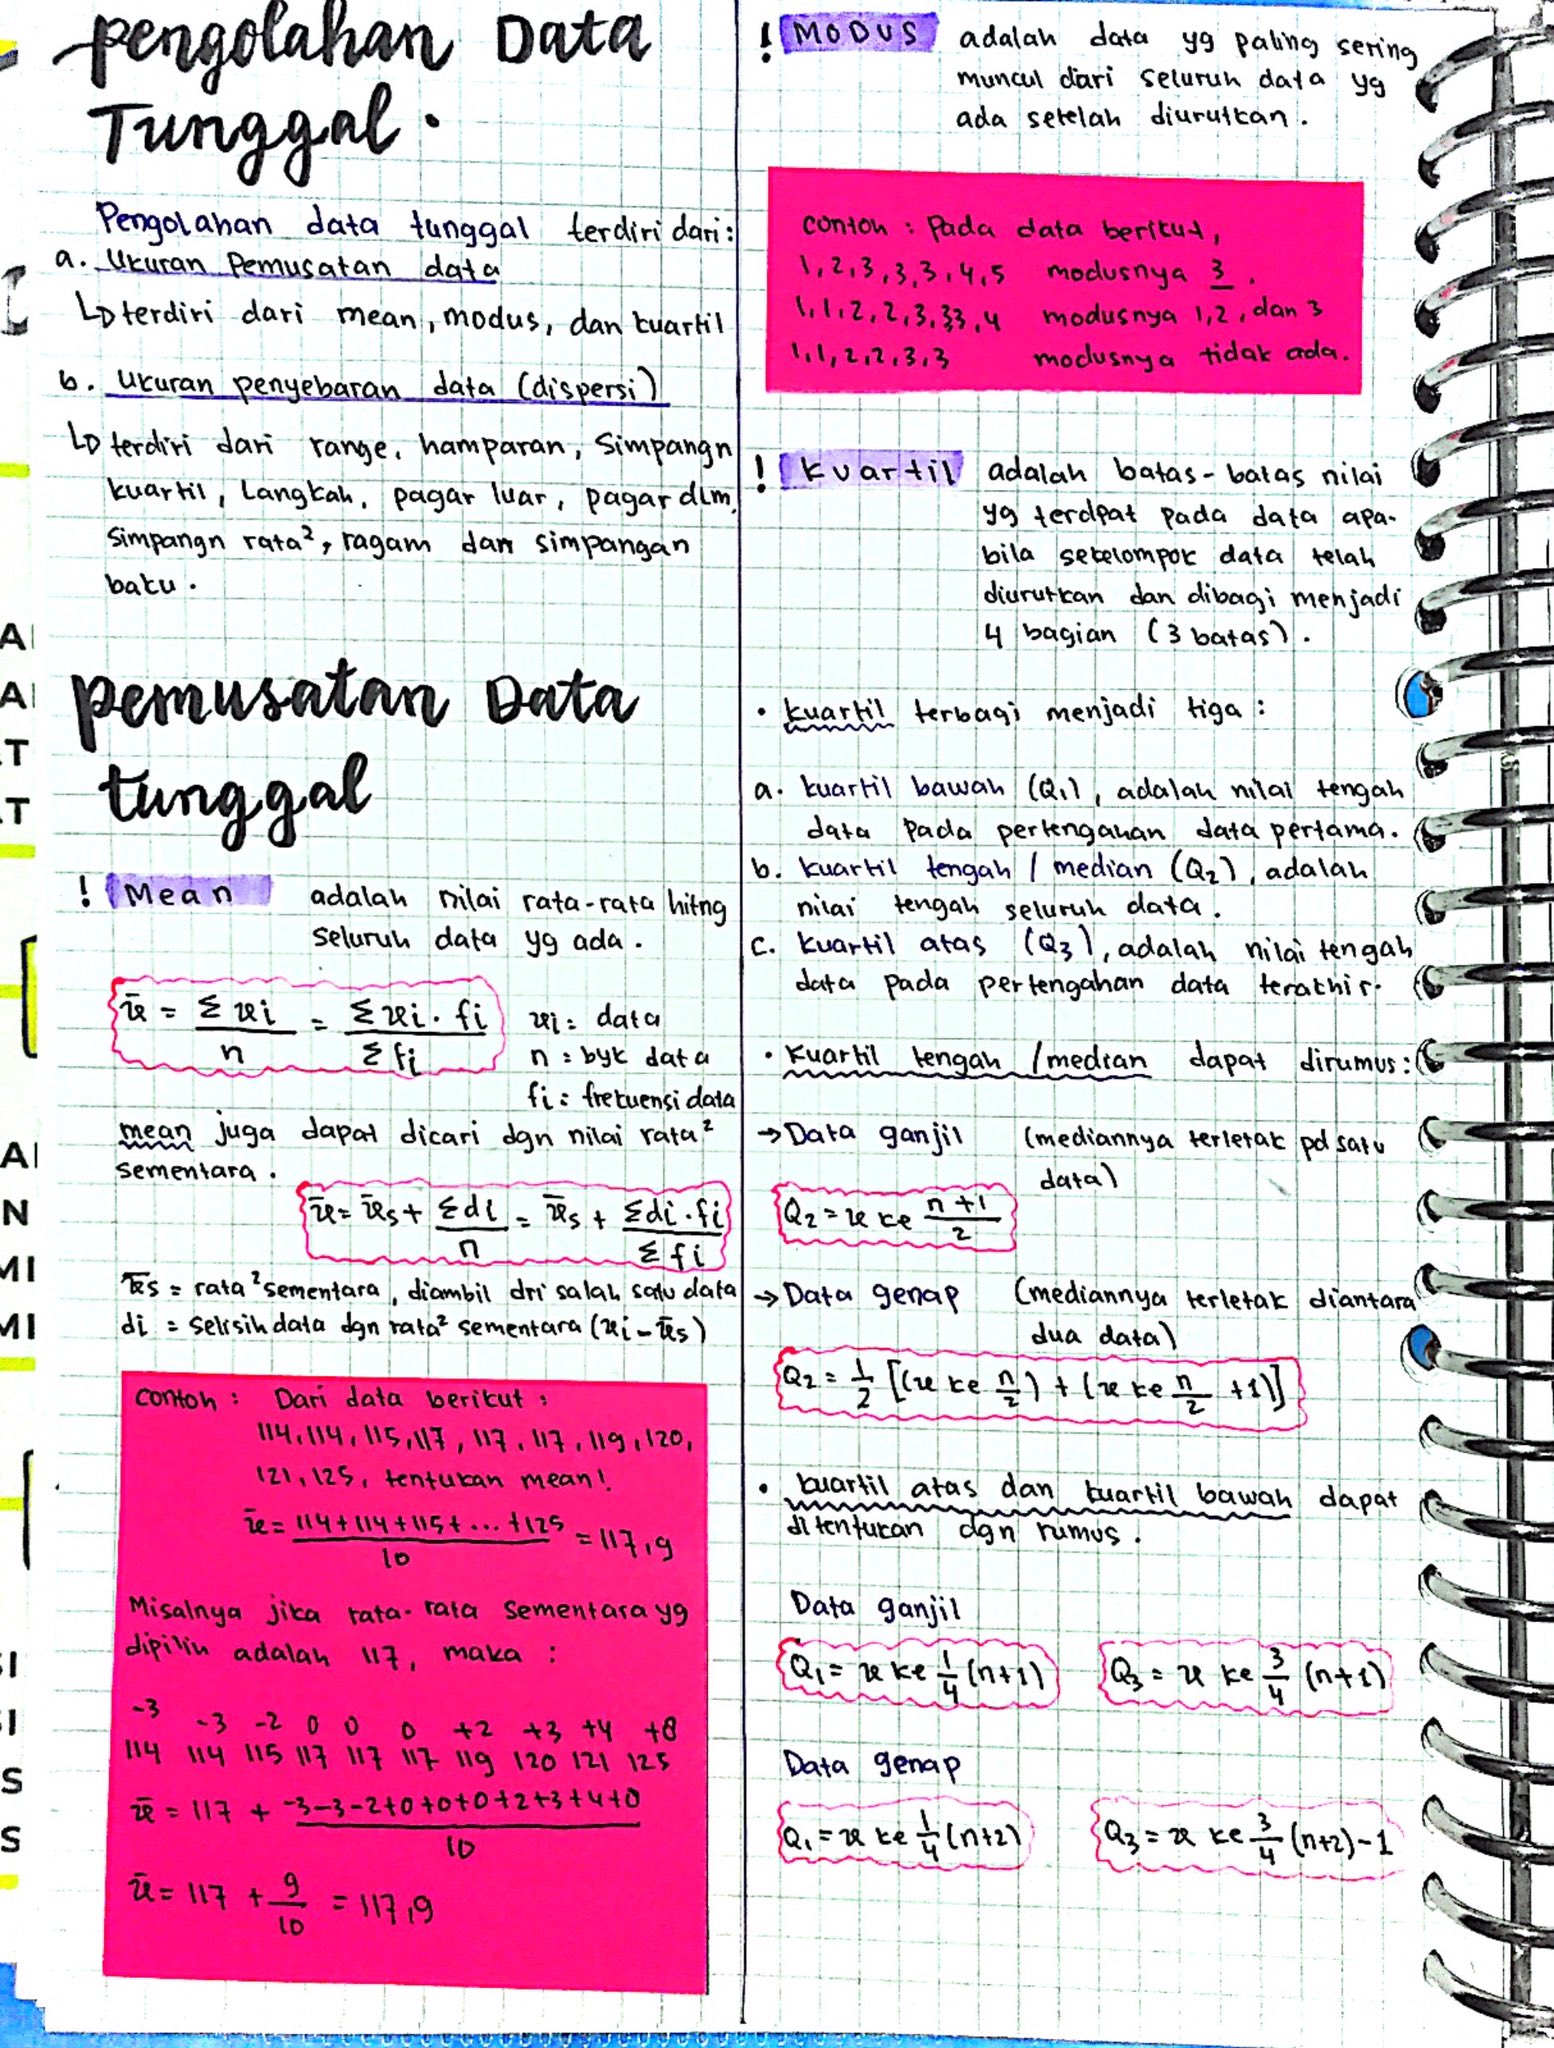 pengolahan Data
Tunggal.
Pengolahan data tunggal terdiri dari:
a. Ukuran Pemusatan data
↳ terdiri dari mean, modus, dan kuartil
b. Ukuran penyebaran data (dispersi)
↳ terdiri dari range, hamparan, Simpangn
kuartil, Langkah, pagar luar, pagar dlm,
Simpangn rata², ragam dan simpangan
baku.
pemusatan Data
tunggal
! Mean adalah nilai rata-rata hitng
seluruh data yg ada.
x̄ = Σxi / n = Σxi . fi / Σfi
xi = data
n = byk data
fi = frekuensi data
mean juga dapat dicari dgn nilai rata²
sementara.
x̄ = x̄s + Σdi / n = x̄s + Σdi . fi / Σfi
x̄s = rata² sementara, diambil dri salah satu data
di = selisih data dgn rata² sementara (xi - x̄s)
contoh : Dari data berikut :
114, 114, 115, 117, 117, 117, 119, 120,
121, 125, tentukan mean!
x̄ = 114 + 114 + 115 + ... + 125 / 10 = 117,9
Misalnya jika rata-rata sementara yg
dipilih adalah 117, maka :
-3 -3 -2 0 0 0 +2 +3 +4 +8
114 114 115 117 117 117 119 120 121 125
x̄ = 117 + -3-3-2+0+0+0+2+3+4+8 / 10
x̄ = 117 + 9/10 = 117,9
! MODUS adalah data yg paling sering
muncul dari seluruh data yg
ada setelah diurutkan.
contoh : Pada data berikut,
1, 2, 3, 3, 3, 4, 5 modusnya 3.
1, 1, 2, 2, 3, 33, 4 modusnya 1, 2, dan 3
1, 1, 2, 2, 3, 3 modusnya tidak ada.
! Kuartil adalah batas-batas nilai
yg terdpat pada data apa-
bila sekelompok data telah
diurutkan dan dibagi menjadi
4 bagian (3 batas).
• kuartil terbagi menjadi tiga :
a. kuartil bawah (Q1), adalah nilai tengah
data pada pertengahan data pertama.
b. kuartil tengah / median (Q2), adalah
nilai tengah seluruh data.
c. kuartil atas (Q3), adalah nilai tengah
data pada pertengahan data terakhir.
• Kuartil tengah / median dapat dirumus:
→ Data ganjil (mediannya terletak pd satu
data)
Q2 = x ke n+1 / 2
→ Data genap (mediannya terletak diantara
dua data)
Q2 = 1/2 [(x ke n/2) + (x ke n/2 + 1)]
• kuartil atas dan kuartil bawah dapat
ditentukan dgn rumus.
Data ganjil
Q1 = x ke 1/4 (n+1) Q3 = x ke 3/4 (n+1)
Data genap
Q1 = x ke 1/4 (n+2) Q3 = x ke 3/4 (n+2) - 1